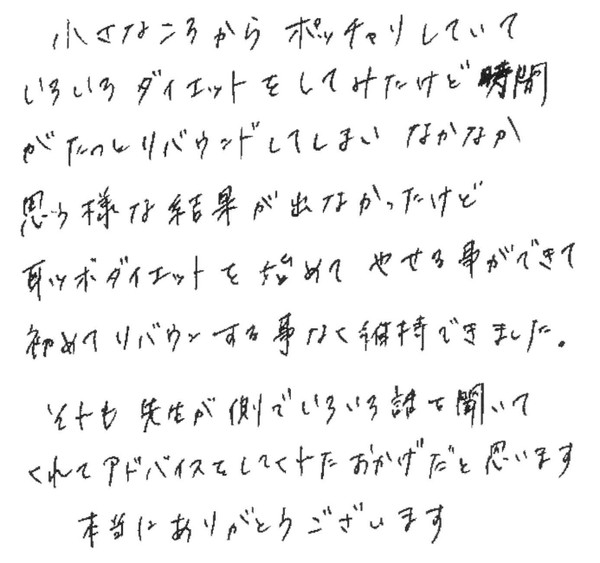 小さなころから ポッチャリしていて
いろいろダイエットをしてみたけど時間
がたつとリバウンドしてしまい なかなか
思う様な結果が出なかったけど
耳ツボダイエットを始めて やせる事ができて
初めてリバウンする事なく維持できました。
それも先生が側でいろいろ話を聞いて
くれてアドバイスをしてくれたおかげだと思います
本当にありがとうございます